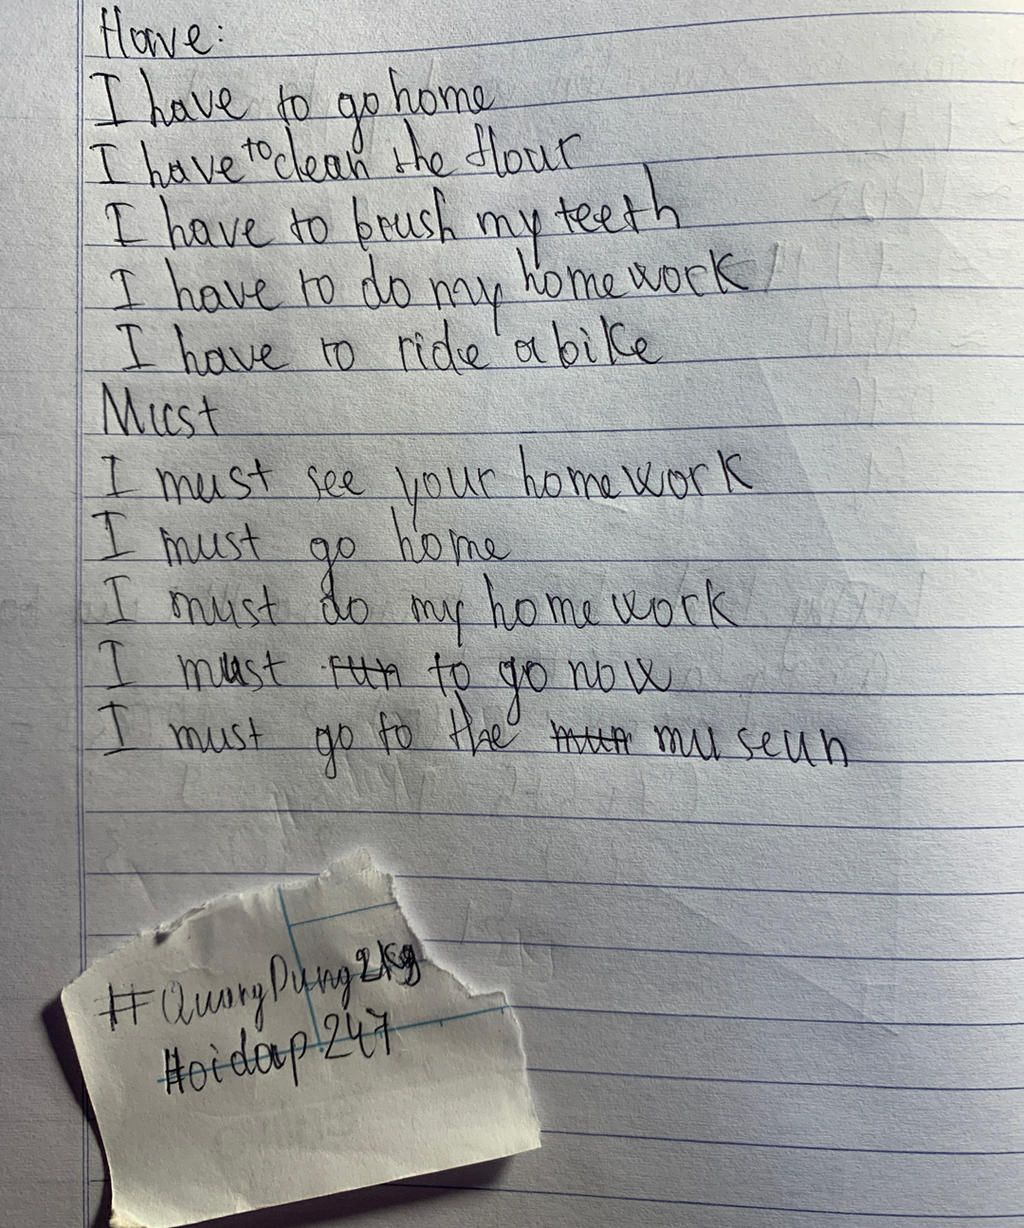 Have:
I have to go home
I have to clean the flour
I have to brush my teeth
I have to do my homework
I have to ride a bike
Must
I must see your homework
I must go home
I must do my home work
I must run to go now
I must go to the mun museun
#QuangDung2k9
Hoidap247